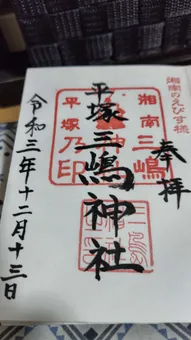 湘南のえびす様
奉拝
湘南三嶋
平塚乃印
平塚三嶋神社
令和三年十二月十三日